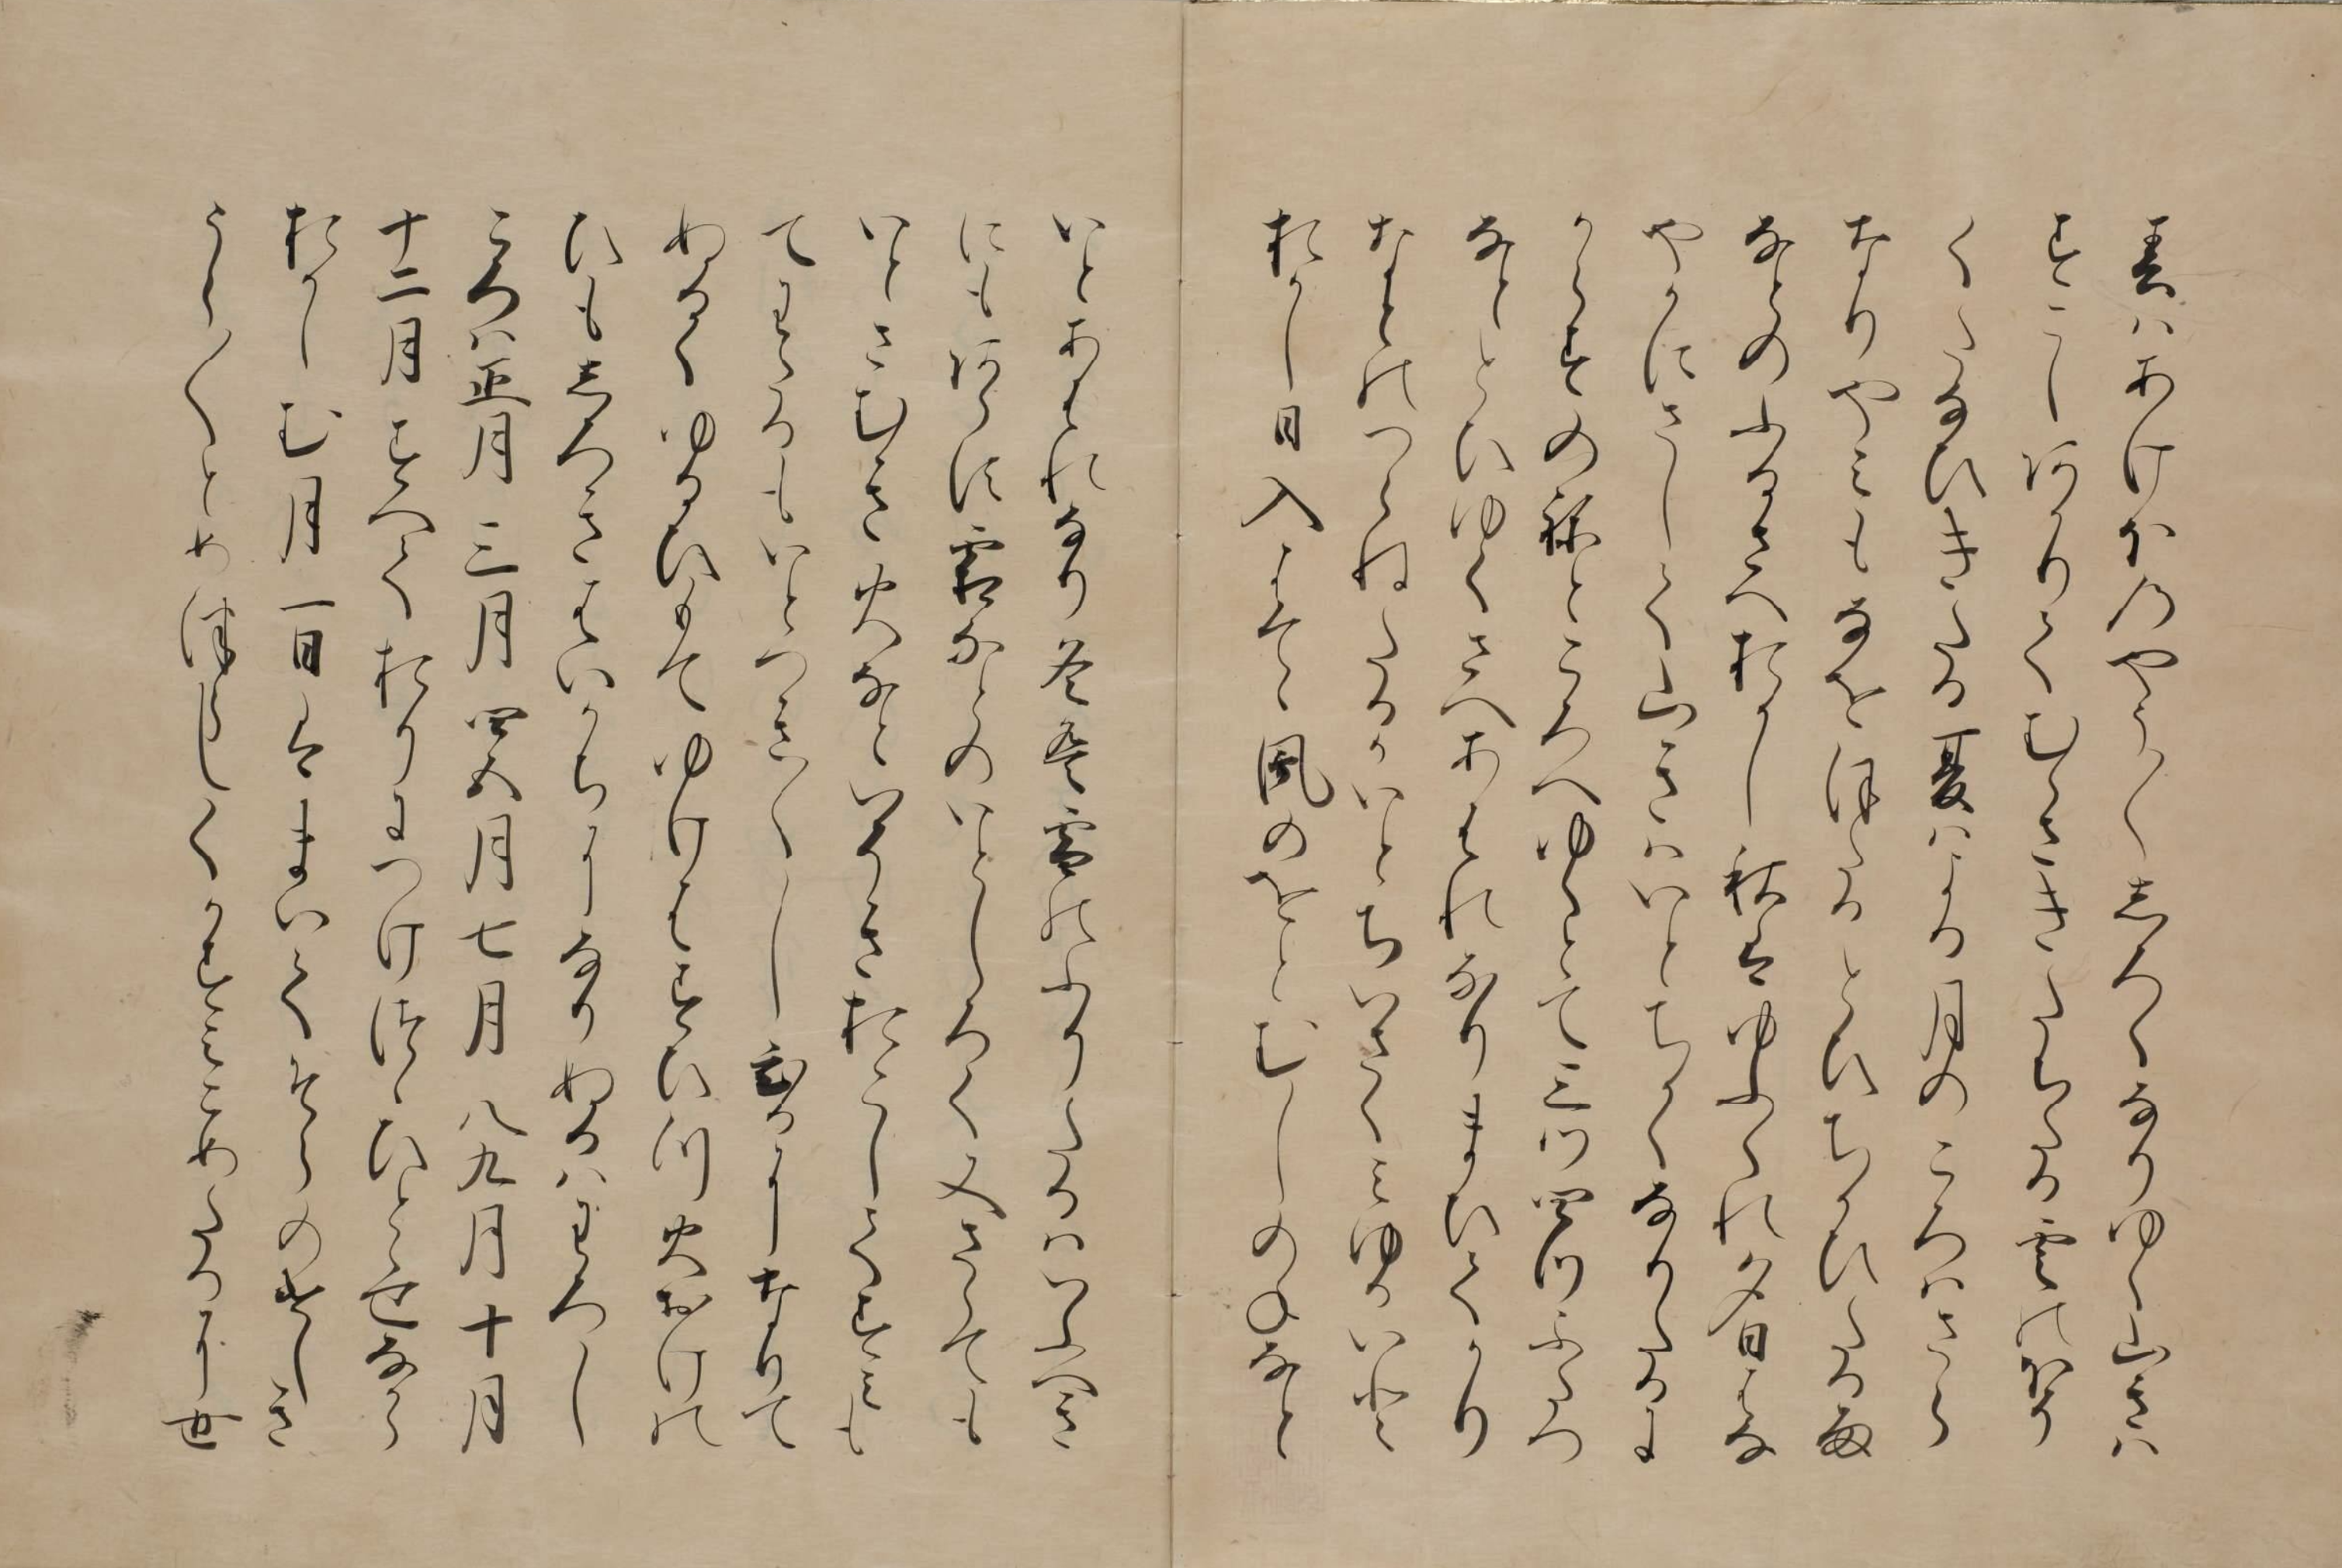 春はあけほのやう〳〵しろくなりゆく山きは
すこしあかりてむらさきたちたる雲のほそ
くたなひきたる夏はよる月のころはさら
なりやみもなをほたるとひちかひたる雨
なとのふるさへおかし秋はゆふくれ夕日はな
やかにさして山きはいとちかくなりたるに
からすのねところへゆくとて三つ四つふたつ
なととひゆくさへあはれなりまいてかり
なとのつらねたるかいとちいさくみゆるいと
おかし日入はてゝ風のをとむしのねなと
いとあはれなり冬は雪のふりたるはいふへき
にもあらす霜なとのいとしろく又さらても
いとさむき火なといそきおこしてすみも
てわたるもいとつき〳〵し昼になりて
ぬるくゆるひもてゆけはすひつ火おけの
ひもしろきはいかちになりぬるはわろし
ころは正月三月四五月七月八九月十月
十二月すへておりにつけつゝひとゝせなから
おかしむ月一日はまいてそらのけしき
うら〳〵とめつらしくかすみこめたるに世